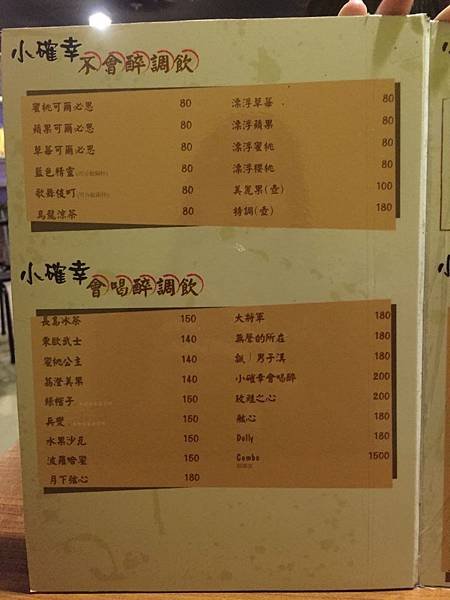 小確幸 不會醉調飲
蜜桃可爾必思 80
蘋果可爾必思 80
草莓可爾必思 80
藍色精靈 80
歌舞伎町 80
烏龍涼茶 80
漂浮草莓 80
漂浮蘋果 80
漂浮蜜桃 80
漂浮櫻桃 80
美莓果(壺) 100
特調(壺) 180
小確幸 會喝醉調飲
長島冰茶 150
東歐武士 140
蜜桃公主 140
荔澄美果 140
綠帽子 150
兵變 150
水果沙瓦 150
波羅哈蜜 150
月下弦心 180
大將軍 180
無聲的所在 180
誠!男子漢 180
小確幸會喝醉 200
玫瑰之心 200
觥心 180
Dolly 180
Combo 1500